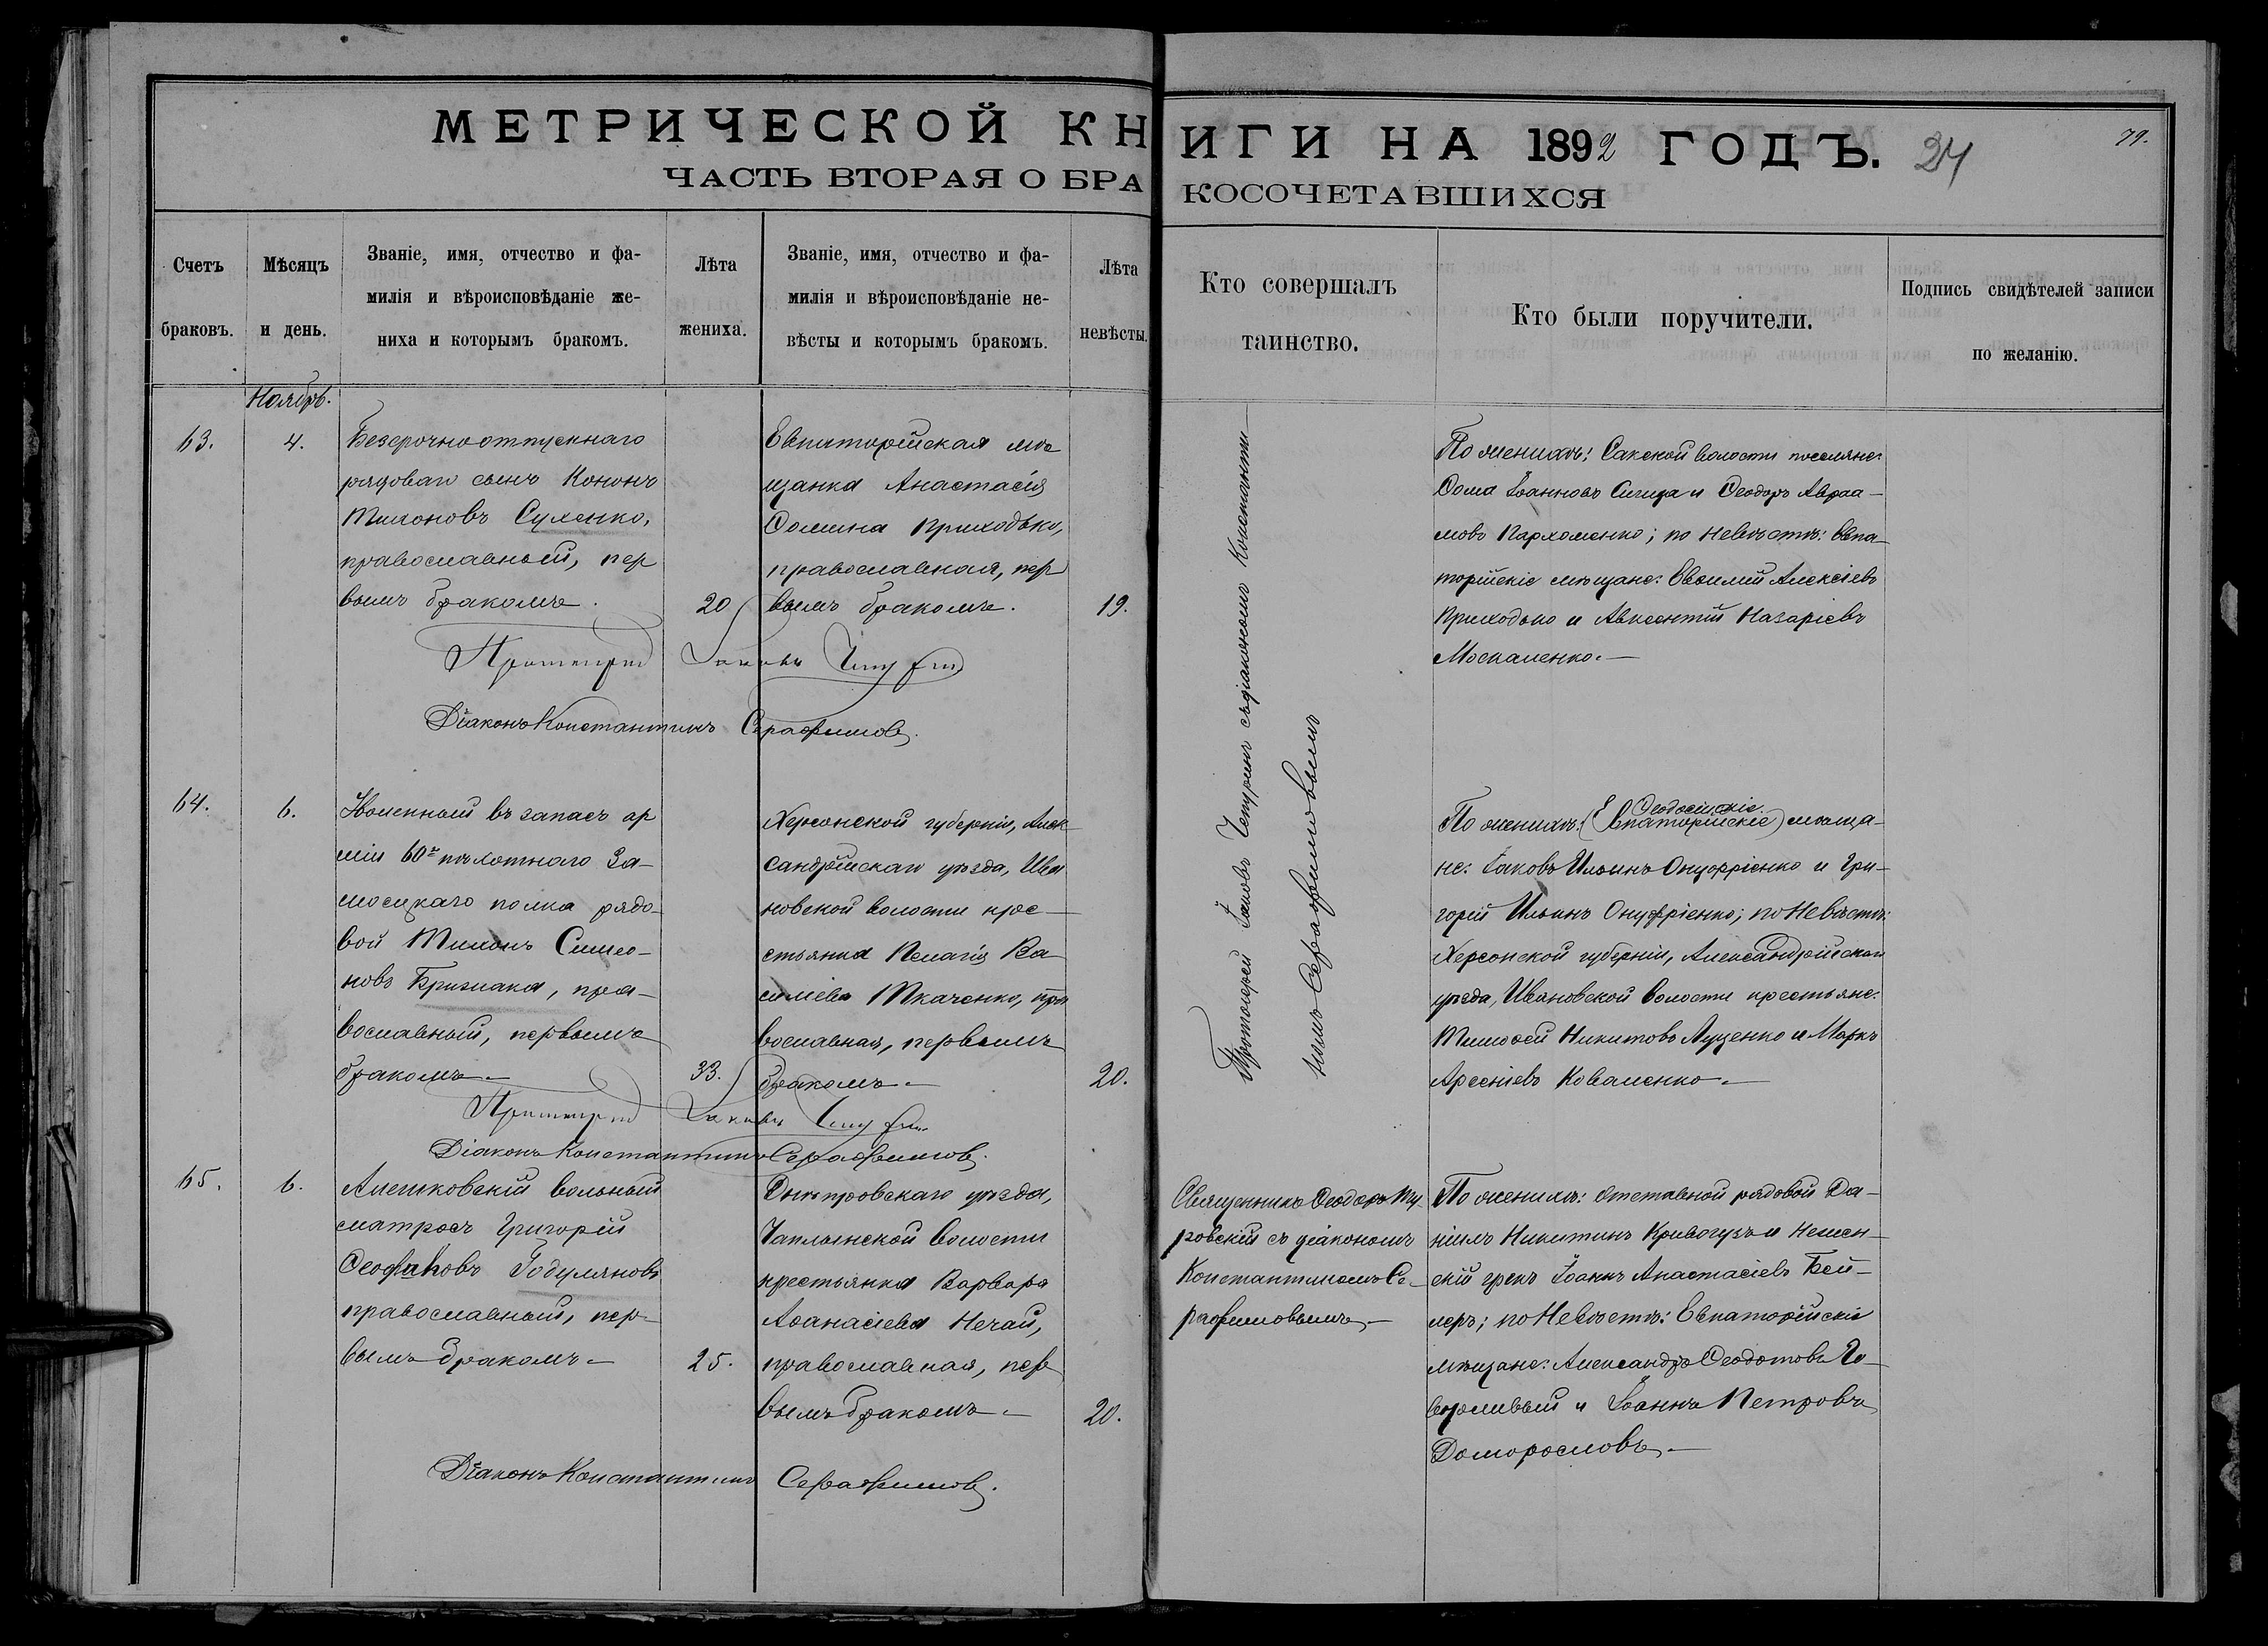 МЕТРИЧЕСКОЙ КНИГИ НА 1892 ГОДЪ. 24
79.
ЧАСТЬ ВТОРАЯ О БРАКОСОЧЕТАВШИХСЯ
Счетъ
браковъ.
Мѣсяцъ
и день.
Званіе, имя, отчество и фа-
милія и вѣроисповѣданіе же-
ниха и которымъ бракомъ.
Лѣта
жениха.
Званіе, имя, отчество и фа-
милія и вѣроисповѣданіе не-
вѣсты и которымъ бракомъ.
Лѣта
невѣсты.
Кто совершалъ
таинство.
Кто были поручители.
Подпись свидѣтелей записи
по желанію.
Ноябрь.
63.
4.
Безсрочноотпускнаго
рядоваго сынъ Кононъ
Тихоновъ Сухенко,
православный, пер
вымъ бракомъ.
20
Евпаторійская мѣ
щанка Анастасія
Ѳомина Приходько,
православная, пер
вымъ бракомъ.
19.
Протоіерей Іаковъ Чепуринъ
Діаконъ Константинъ Серафимовъ.
Протоіерей Іаковъ Чепуринъ съ діакономъ Константи-
номъ Серафимовымъ
По женихѣ: Сакской волости поселяне:
Ѳома Іоанновъ Сигида и Ѳеодоръ Авраа-
мовъ Пархоменко; по невѣстѣ: Евпа-
торійскіе мѣщане: Евѳимій Алексіевъ
Приходько и Авксентій Назаріевъ
Москаленко.
64.
6.
Уволенный въ запасъ ар
міи 60го пѣхотнаго За-
мосцкаго полка рядо-
вой Тихонъ Симео-
новъ Бризмака, пра-
вославный, первымъ
бракомъ
33.
Херсонской губерніи, Алек-
сандрійскаго уѣзда, Ива
новской волости крес-
стьянка Пелагія Ва
силіева Ткаченко, пра
вославная, первымъ
бракомъ
20.
Протоіерей Іаковъ Чепуринъ
Діаконъ Константинъ Серафимовъ.
Ѳеодосійскіе
По женихѣ: (Евпаторійскіе) мѣща-
не: Іаковъ Ильинъ Онуфріенко и Гри-
горій Ильинъ Онуфріенко; по невѣстѣ:
Херсонской губерніи, Александрійскаго
уѣзда, Ивановской волости крестьяне:
Тимоѳей Никитовъ Луценко и Маркъ
Арсеніевъ Коваленко.
65.
6.
Алешковскій вольный
матросъ Григорій
Ѳеофановъ Годуляновъ
православный, пер-
вымъ бракомъ
25.
Днѣпровскаго уѣзда,
Чаплынской волости
крестьянка Варвара
Аѳанасіева Нечай,
православная, пер
вымъ бракомъ
20.
Діаконъ Константинъ Серафимовъ.
Священникъ Ѳеодоръ Ту-
ровскій съ діакономъ
Константиномъ Се-
рафимовымъ.
По женихѣ: Отставной рядовой Да-
ніилъ Никитинъ Кривогузъ и
грекъ Іоаннъ Анастасіевъ Бей-
леръ; по невѣстѣ: Евпаторійскіе
мѣщане: Александръ Ѳеодотовъ Го-
ворливый и Іоаннъ Петровъ
Доморословъ.